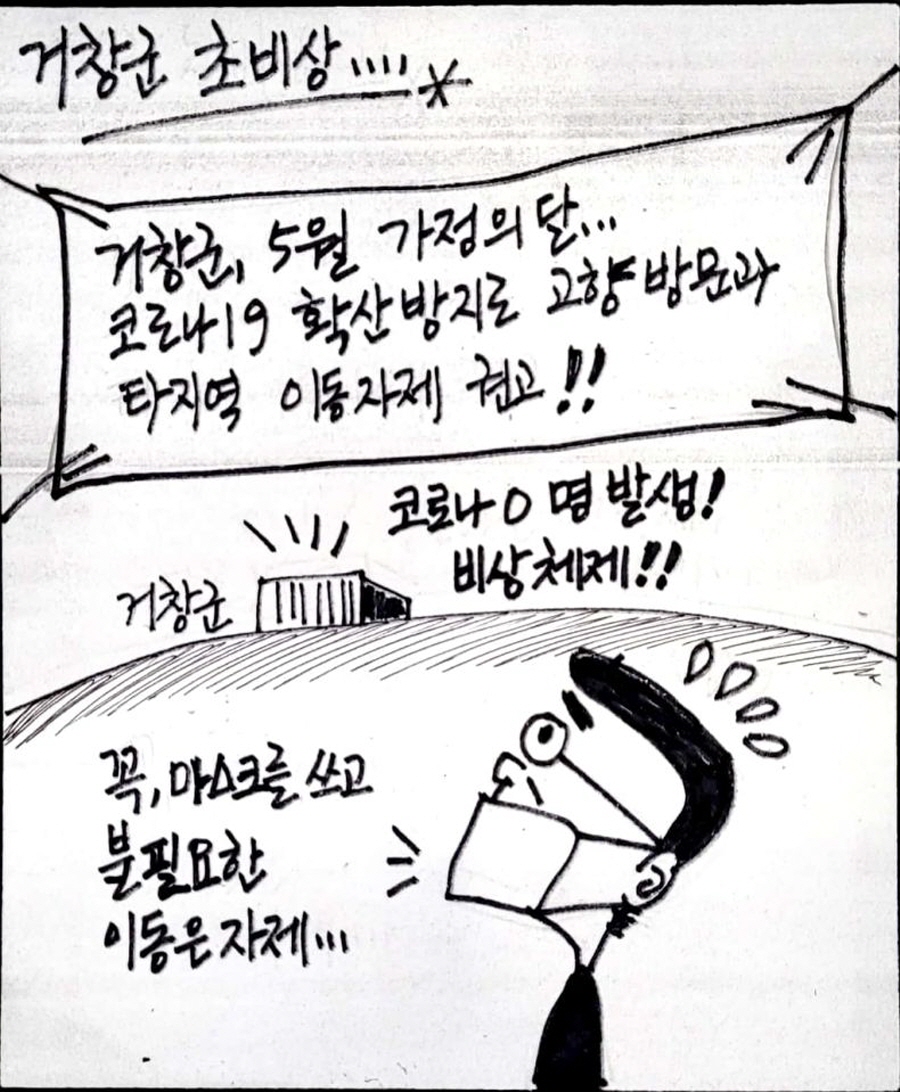 거창군 초비상....
거창군, 5월 가정의 달...
코로나19 확산방지로 고향방문과
타지역 이동자제 권고!!
코로나 0 명 발생!
비상체제!!
거창군
꼭, 마스크를 쓰고
불필요한
이동은 자제...